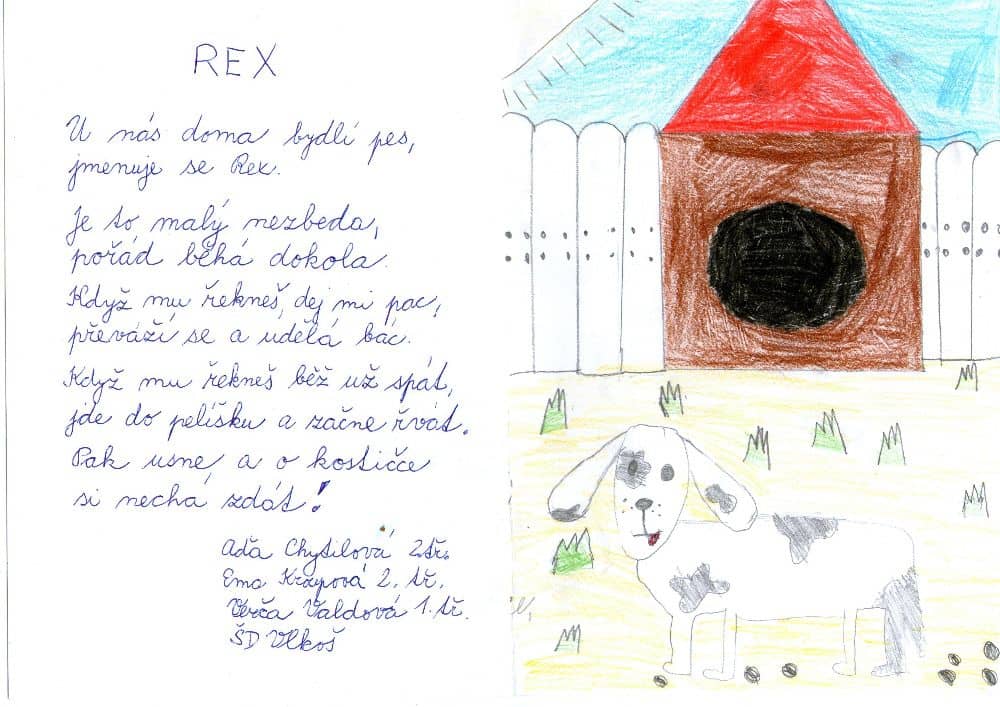 REX
U nás doma bydlí pes,
jmenuje se Rex.
Je to malý nezbeda,
pořád běhá dokola.
Když mu řekneš, dej mi pac,
převáží se a udělá bác.
Když mu řekneš běž už spát,
jde do pelíšku a začne řvát.
Pak usne, a o kostičce
si nechá zdát!
Aďa Chytilová 2.tř.
Ema 2. tř.
Verča Valdová 1. tř.
ŠD Vlkoš